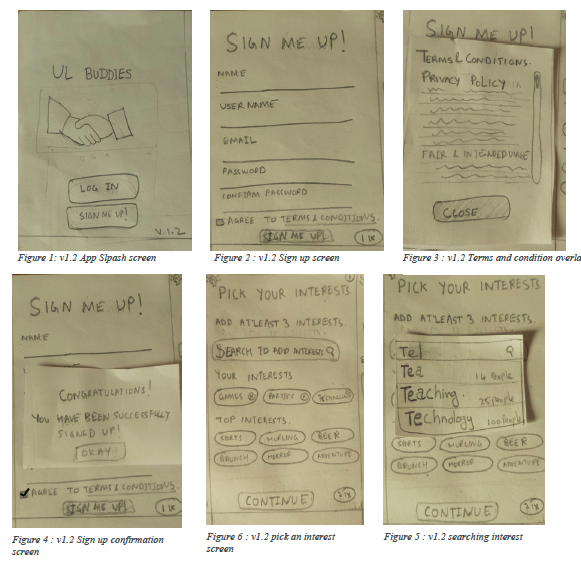 UL BUDDIES
LOG IN
SIGN ME UP!
V.1.2
Figure 1 : v1.2 App Slpash screen
SIGN ME UP!
NAME
USER NAME
EMAIL
PASSWORD
CONFIRM PASSWORD
AGREE TO TERMS & CONDITIONS.
SIGN ME UP!
Figure 2 : v1.2 Sign up screen
SIGN ME UP!
TERMS & CONDITIONS.
PRIVACY POLICY
FAIR & INTENDED USAGE
CLOSE
Figure 3 : v1.2 Terms and condition overla
SIGN ME UP!
NAME
CONGRATULATIONS!
YOU HAVE BEEN SUCCESSFULLY
SIGNED UP!
OKAY
AGREE TO TERMS & CONDITIONS.
SIGN ME UP!
Figure 4 : v1.2 Sign up confirmation
screen
PICK YOUR INTERESTS
ADD ATLEAST 3 INTERESTS.
SEARCH TO ADD INTERESTS
YOUR INTERESTS
GAMES PARTIES
TOP INTERESTS.
BEER
BRUNCH HORROR ADVENTURE
CONTINUE
Figure 6 : v1.2 pick an interest
screen
PICK YOUR INTERESTS
ADD ATLEAST 3 INTERESTS.
Te
Tea 14 People
Teaching. 25 people
Technology 100 People
BEER
BRUNCH HORROR ADVENTURE
CONTINUE
Figure 5 : v1.2 searching interest